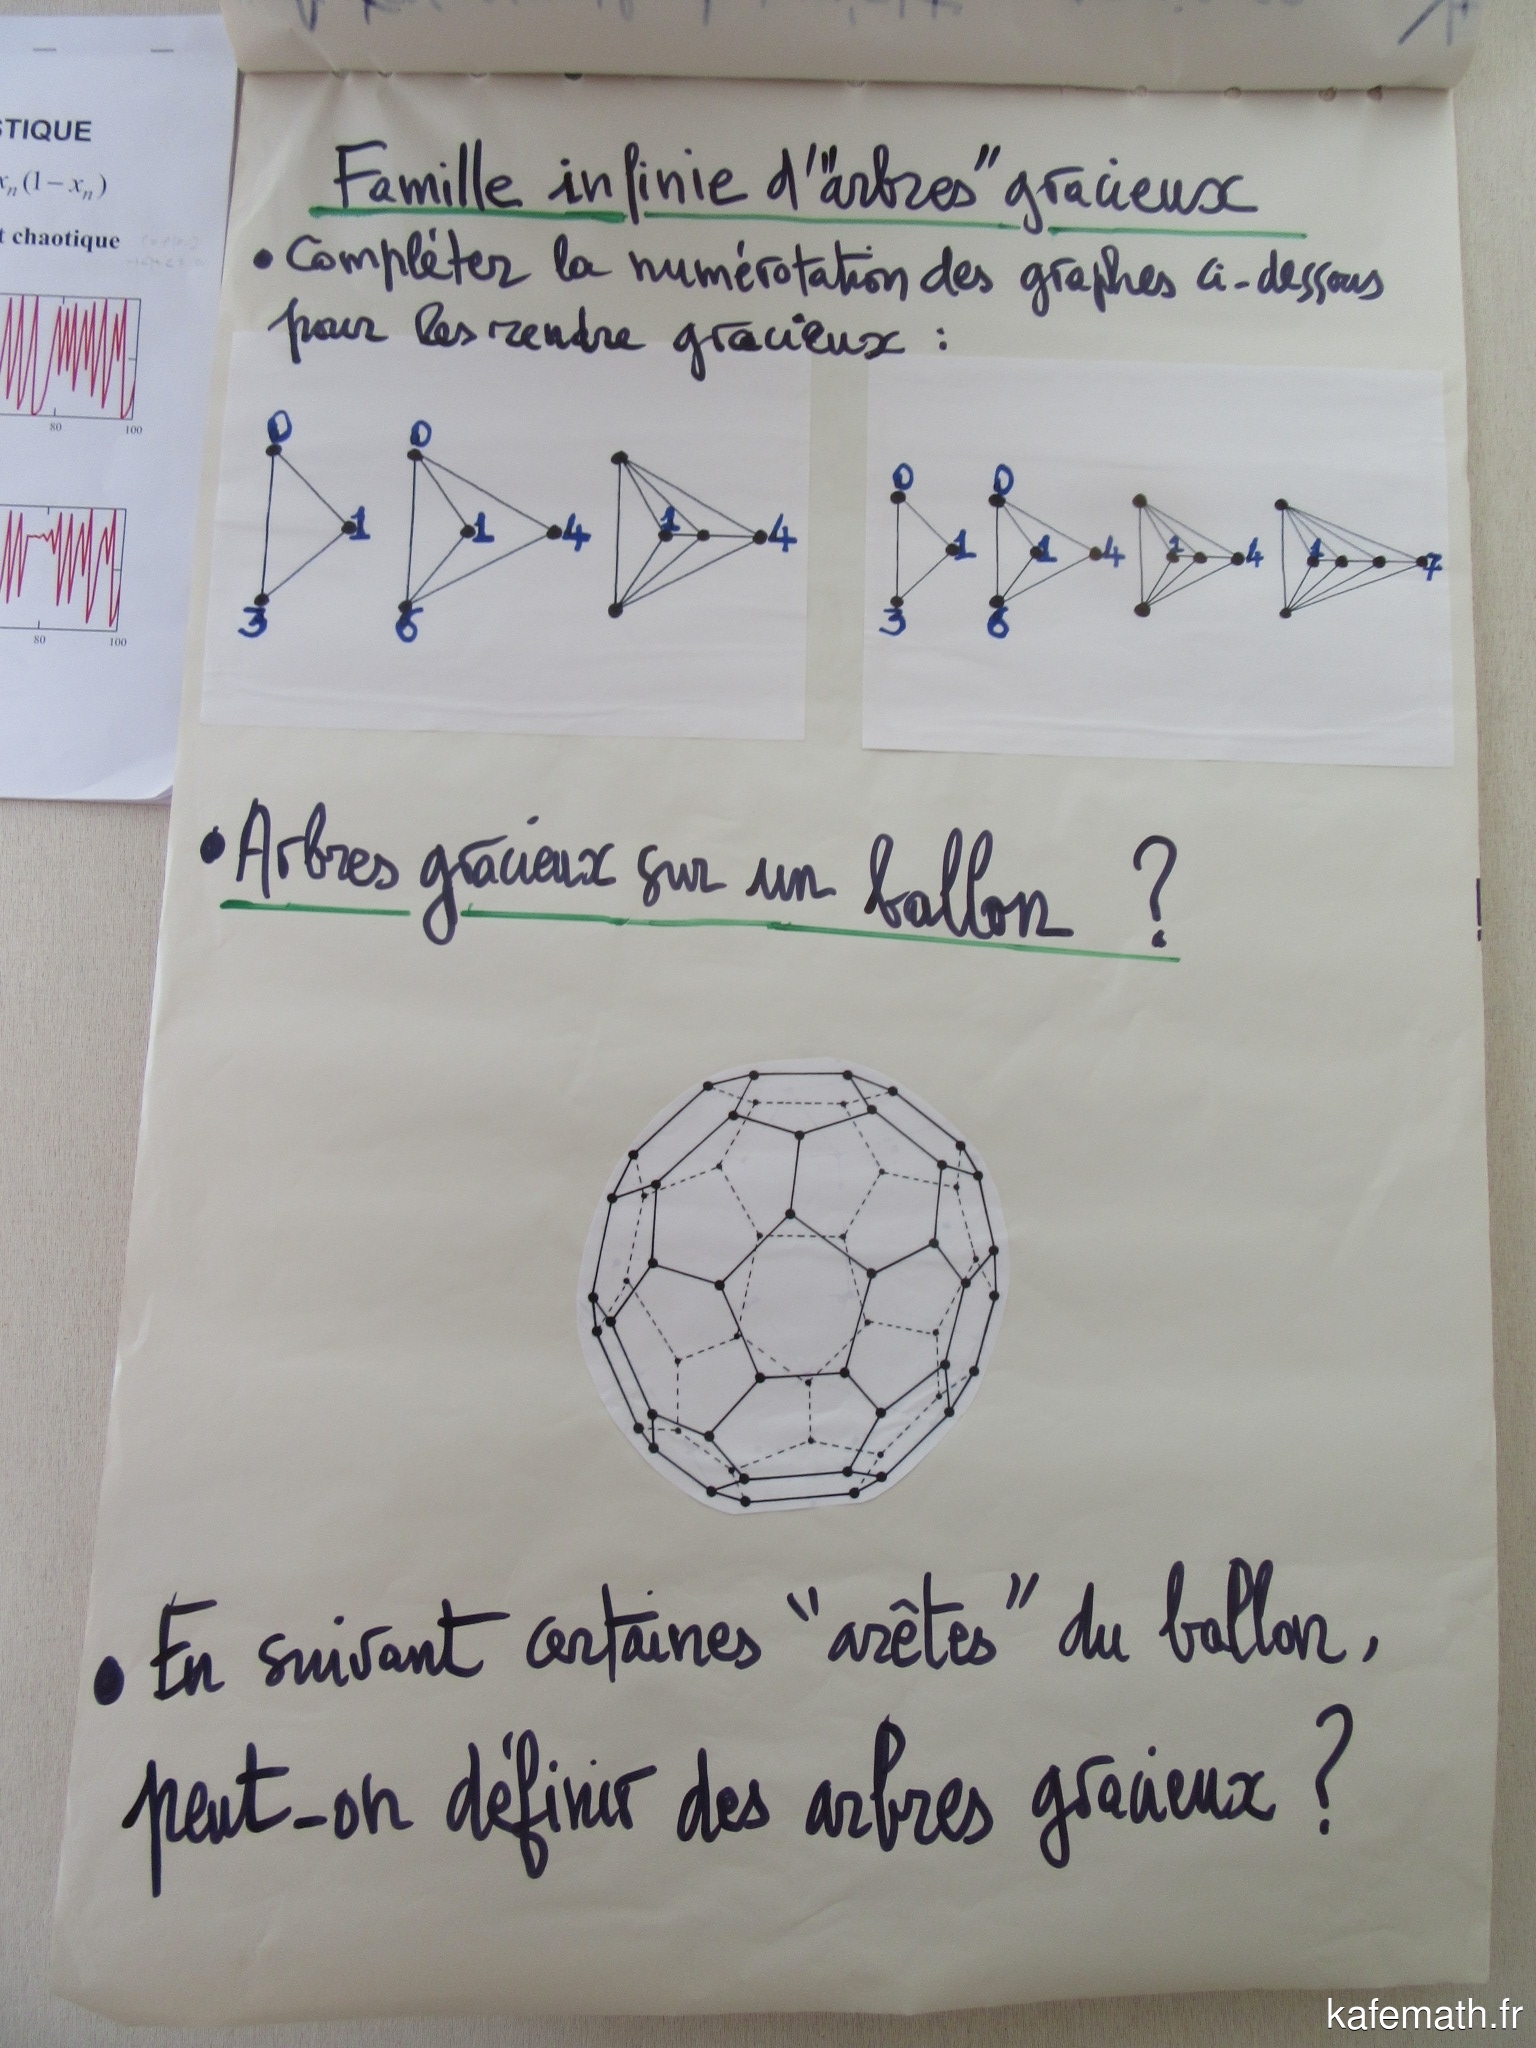 STIQUE
xₙ(1−xₙ)
t chaotique
80
100
80
100
Famille infinie d'"arbres" gracieux
• Compléter la numérotation des graphes ci-dessous
pour les rendre gracieux :
0
1
3
0
1
4
6
1
4
0
1
3
0
1
4
6
1
4
1
7
• Arbres gracieux sur un ballon ?
• En suivant certaines "arêtes" du ballon,
peut-on définir des arbres gracieux ?
kafemath.fr